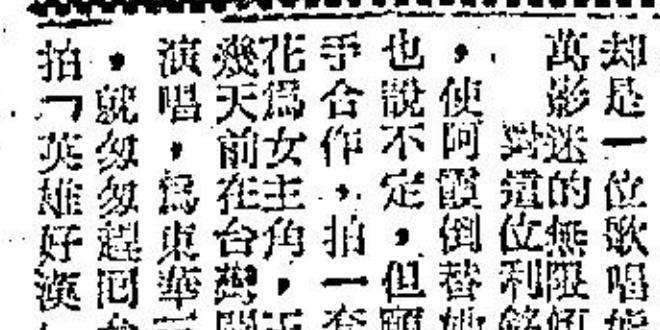 却是一位歌唱
萬影迷的無限
對這位利
，使阿霞倒替
也說不定，但
手合作，拍一套
花為女主角，
幾天前在台灣
演唱，為東華
，就匆匆趕回
拍「英雄好漢